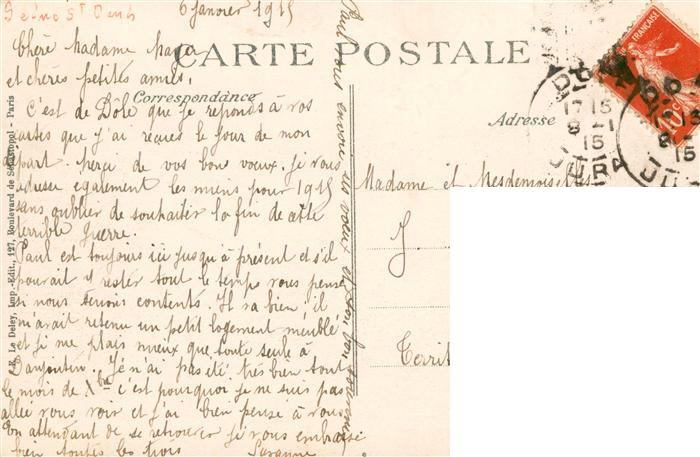 Seine St Denis
6 Janvier 1915
CARTE POSTALE
Correspondance
Adresse
Chère Madame
et chères petites amies,
C'est de Dôle que je réponds à vos
cartes que j'ai reçues le jour de mon
départ. Merci de vos bons voeux. Je vous
adresse également les miens pour 1915
sans oublier de souhaiter la fin de cette
terrible guerre.
Paul est toujours ici jusqu'à présent et s'il
pourait y rester tout le temps vous pensez
si nous serions contents. Il va bien, il
m'avait retenu un petit logement meublé
et je me plais mieux que toute seule à
Danjoutin. Je n'ai pas été très bien tout
le mois de Xbre c'est pourquoi je ne suis pas
allée vous voir et j'ai bien pensé à vous
En attendant de se retrouver je vous embrasse
bien toutes les trois
Suzanne
Paul vous envoie ses voeux et son bon souvenir
Madame et Mesdemoiselles
J
Territ
E. Le Deley, Imp.-Edit., 127, Boulevard de Sébastopol - Paris
FRANÇAISE
10c
DOLE
17 15
8 -1
15
JURA
8 -
15
JU